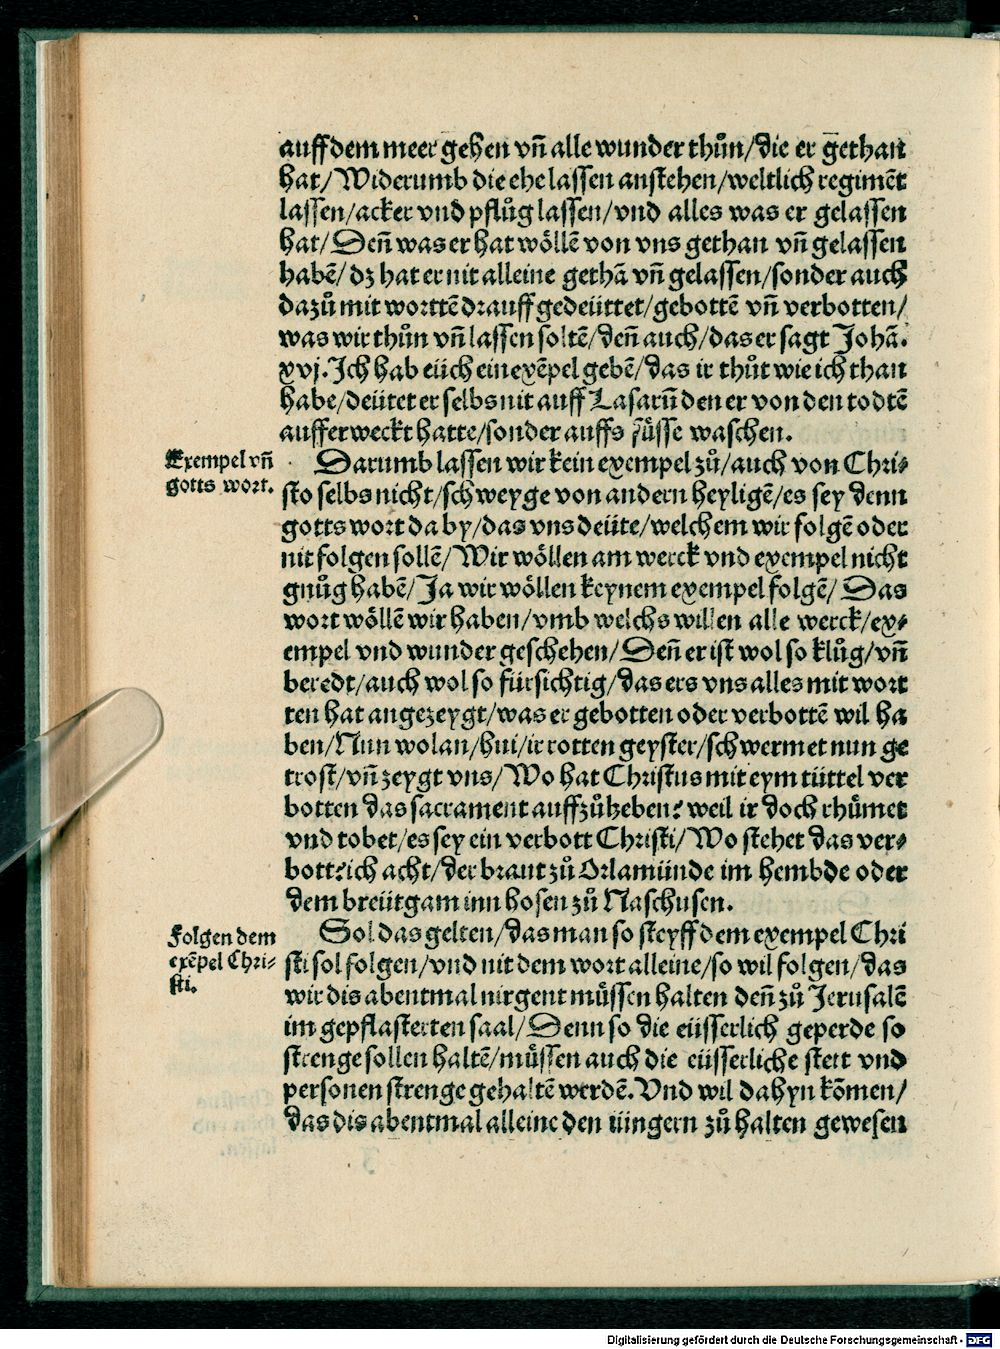 auff dem meer gehen vñ alle wunder thůn/die er gethan
hat/Widerumb die ehe lassen anstehen/weltlich regimēt
lassen/acker vnd pflůg lassen/vnd alles was er gelassen
hat/Deñ was er hat wöllē von vns gethan vñ gelassen
habē/dz hat er nit alleine gethā vñ gelassen/sonder auch
dazů mit worttē drauff gedeüttet/gebottē vñ verbotten/
was wir thůn vñ lassen soltē/deñ auch/das er sagt Johā.
xvj. Ich hab eüch ein exēpel gebē/das ir thůt wie ich than
habe/deütet er selbs nit auff Lasarū den er von den todtē
aufferweckt hatte/sonder auffs füsse waschen.
Exempel vñ
gotts wort.
Darumb lassen wir kein exempel zů/auch von Chri-
sto selbs nicht/schweyge von andern heyligē/es sey denn
gotts wort da by/das vns deüte/welchem wir folgē oder
nit folgen sollē/Wir wöllen am werck vnd exempel nicht
gnůg habē/Ja wir wöllen keynem exempel folgē/Das
wort wöllē wir haben/vmb welchs willen alle werck/ex-
empel vnd wunder geschehen/Deñ er ist wol so klůg/vñ
beredt/auch wol so fürsichtig/das ers vns alles mit wort
ten hat angezeygt/was er gebotten oder verbottē wil ha
ben/Nun wolan/hui/ir rotten geyster/schwermet nun ge
trost/vñ zeygt vns/Wo hat Christus mit eym tüttel ver
botten das sacrament auffzůheben? weil ir doch rhümet
vnd tobet/es sey ein verbott Christi/Wo stehet das ver-
bott? ich acht/der braut zů Orlamünde im hembde oder
dem breütgam inn hosen zů Naschusen.
Folgen dem
exēpel Chri-
sti.
Sol das gelten/das man so steyff dem exempel Chri
sti sol folgen/vnd nit dem wort alleine/so wil folgen/das
wir dis abentmal nirgent müssen halten deñ zů Jerusalē
im gepflasterten saal/Denn so die eüsserlich geperde so
strenge sollen haltē/müssen auch die eüsserliche stett vnd
personen strenge gehaltē werdē. Vnd wil dahyn kōmen/
das dis abentmal alleine den iüngern zů halten gewesen
Digitalisierung gefördert durch die Deutsche Forschungsgemeinschaft - DFG